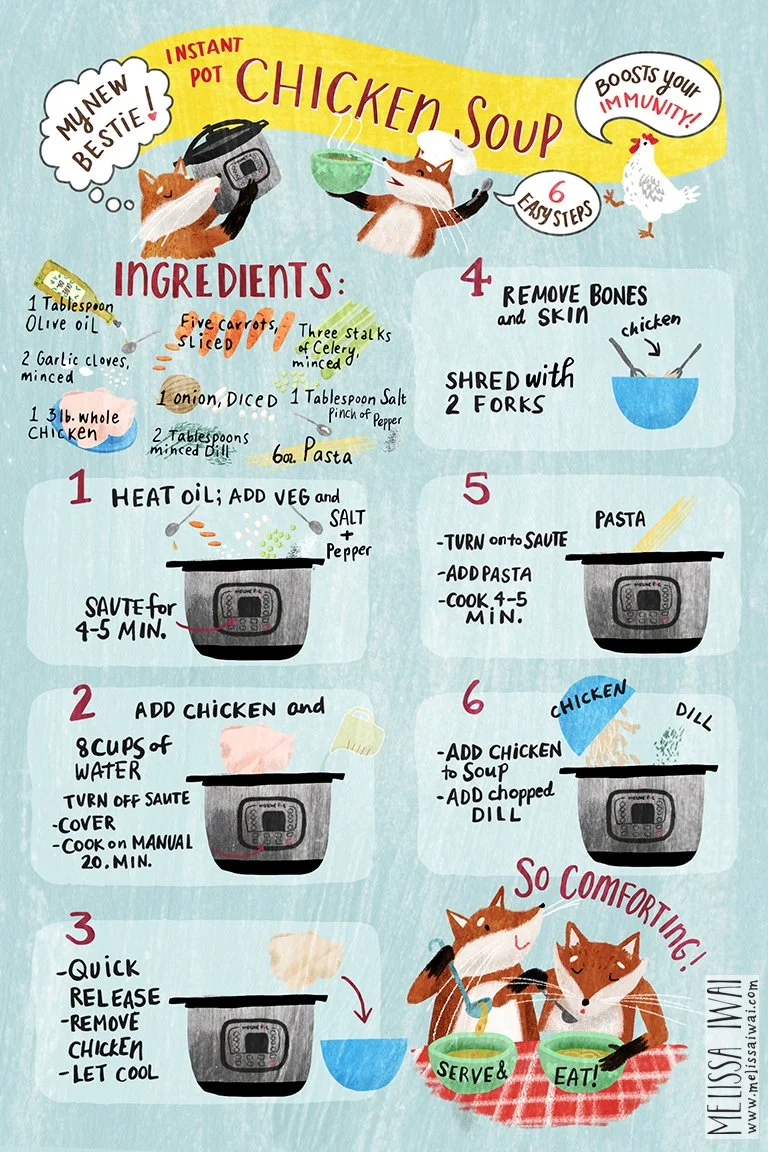 INSTANT
POT
CHICKEN SOUP
MY NEW
BESTIE!
BOOSTS your
IMMUNITY!
6
EASY STEPS
INGREDIENTS:
1 Tablespoon
Olive oil
Five carrots,
sliced
Three stalks
of Celery,
minced
2 Garlic cloves,
minced
1 onion, DICED
1 Tablespoon Salt
Pinch of
Pepper
1 3lb. whole
CHICKEN
2 Tablespoons
minced Dill
6oz. Pasta
1
HEAT OIL; ADD VEG and
SALT
+
Pepper
SAUTE for
4-5 MIN.
2
ADD CHICKEN and
8 CUPS of
WATER
TURN OFF SAUTE
-COVER
-COOK on MANUAL
20. MIN.
3
-QUICK
RELEASE
-REMOVE
CHICKEN
-LET COOL
4
REMOVE BONES
and SKIN
chicken
SHRED with
2 FORKS
5
PASTA
-TURN on to SAUTE
-ADD PASTA
-COOK 4-5
MIN.
6
CHICKEN
DILL
-ADD CHICKEN
to Soup
-ADD chopped
DILL
SO COMFORTING!
SERVE &
EAT!
MELISSA IWAI
www.melissaiwai.com